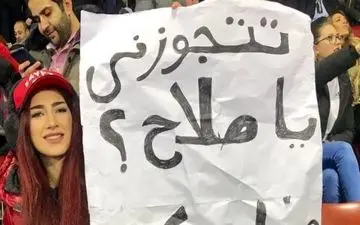 تتجوزني
يا صلاح ؟